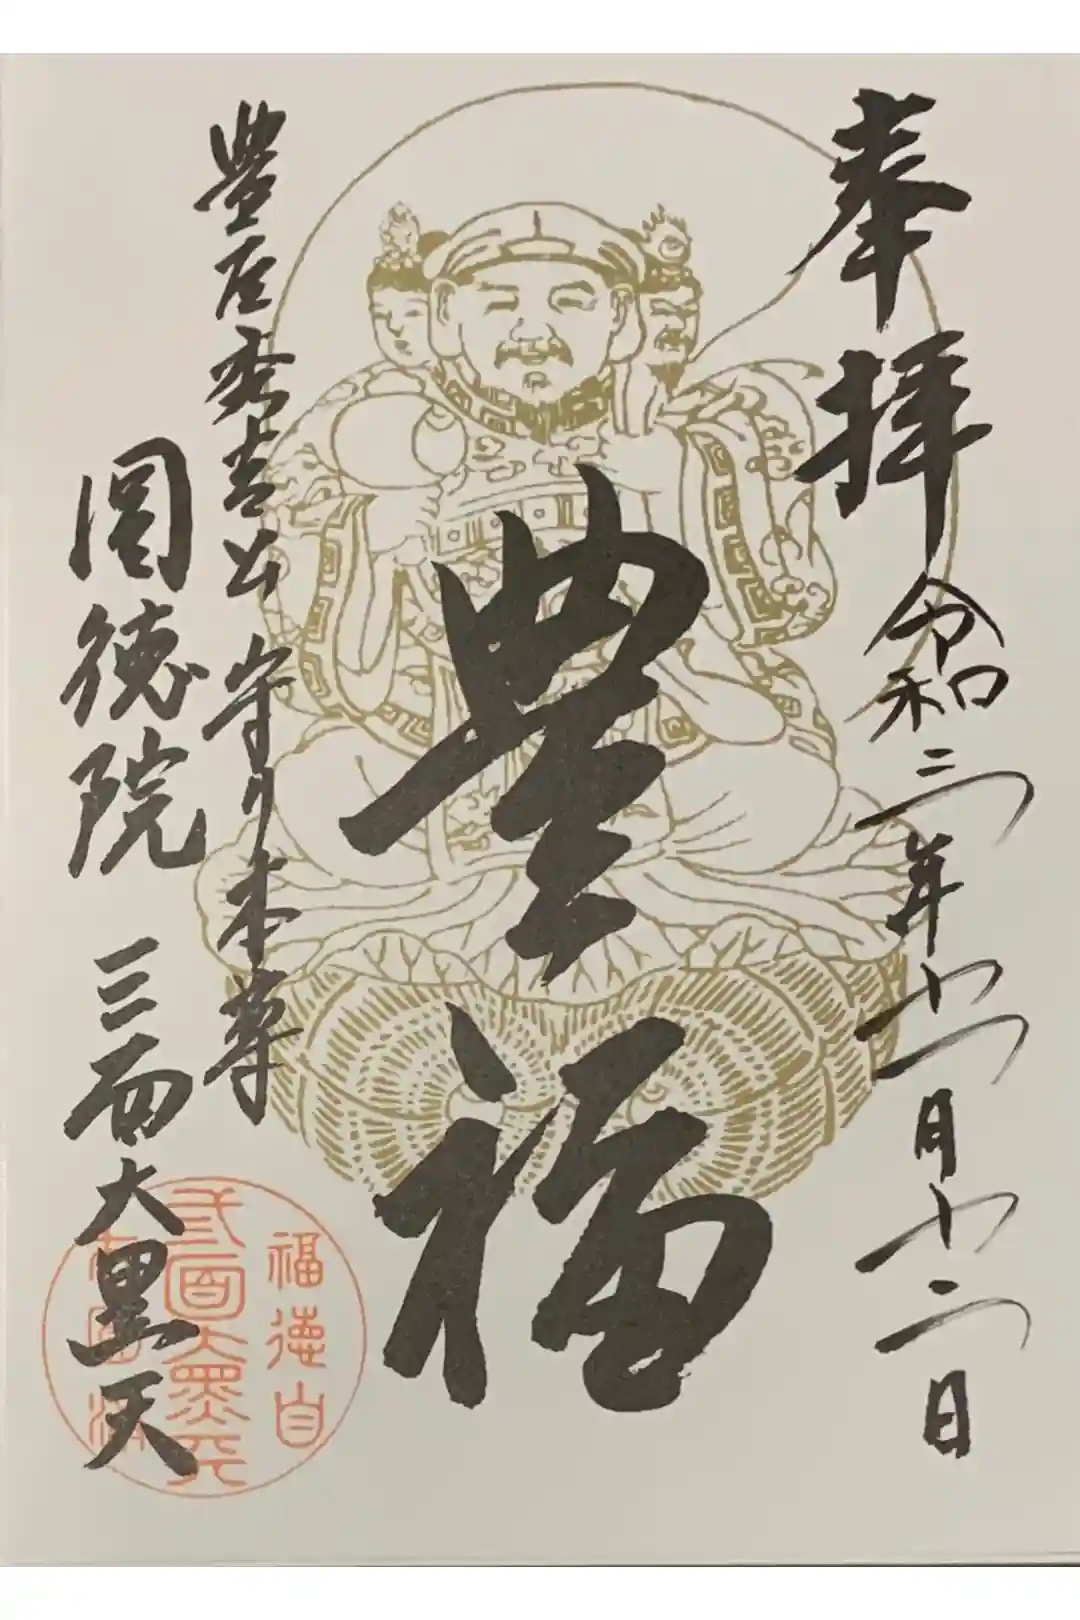 奉拝 令和二年十一月十二日
豊福
豊臣秀吉公 守り本尊
圓徳院 三面大黒天
福徳自
三面大黒天